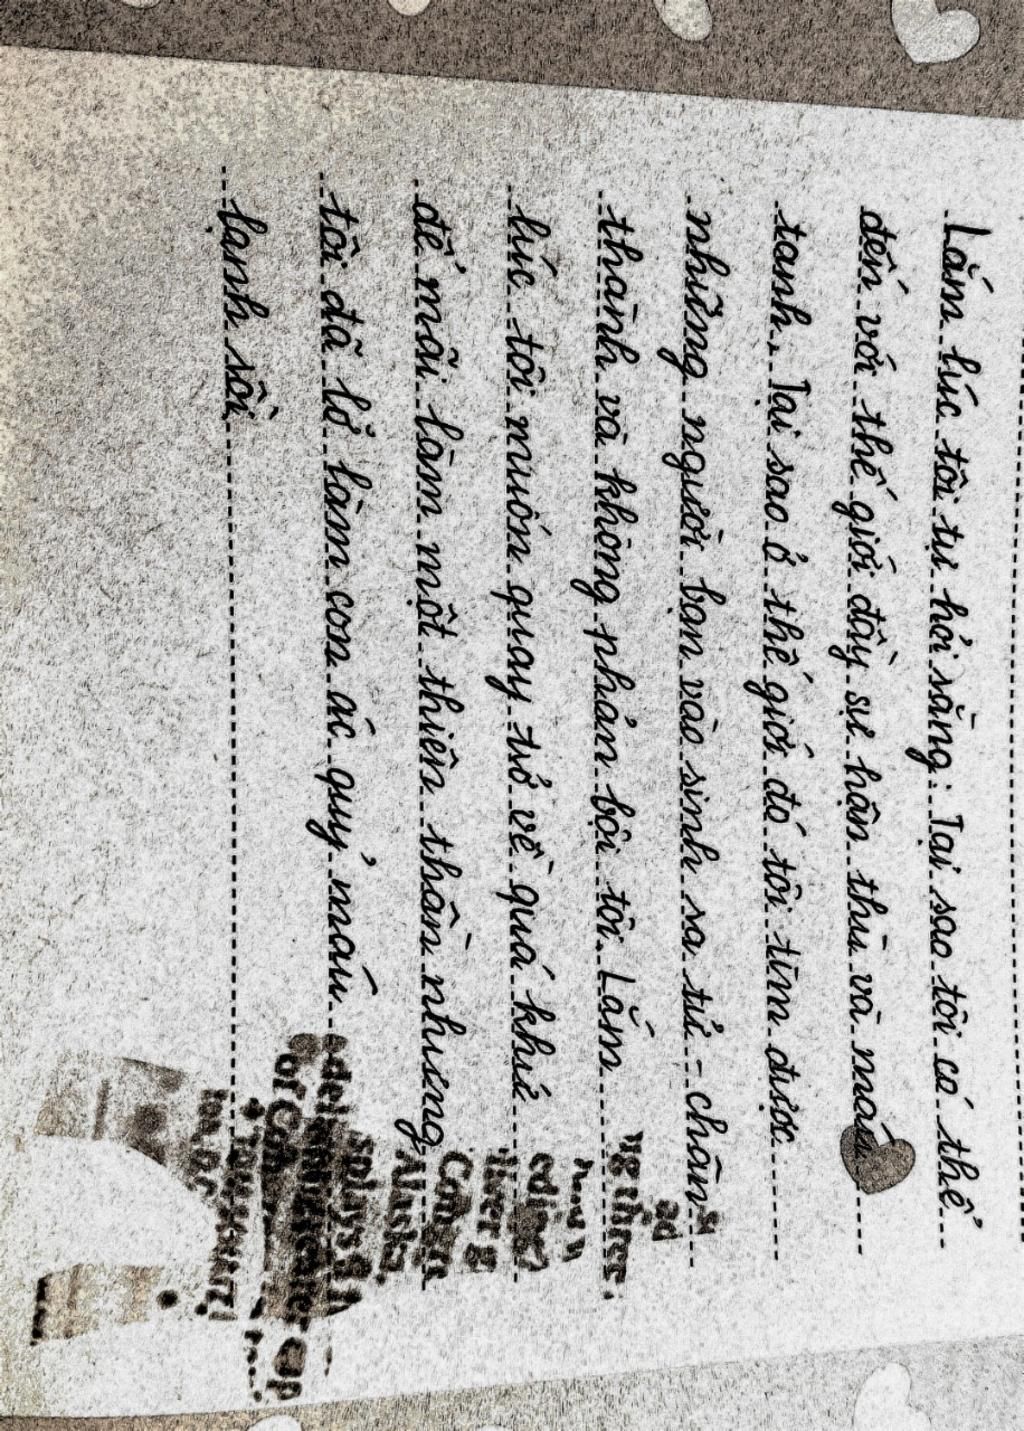 Lắm lúc tôi tự hỏi rằng: Tại sao tôi có thể
đến với thế giới đầy sự hận thù và máu
tanh. Tại sao ở thế giới đó tôi tìm được
những người bạn vào sinh ra tử - chân
thành và không phản bội tôi. Lắm
lúc tôi muốn quay trở về quá khứ
để mãi làm một thiên thần nhưng
tôi đã lỡ làm con ác quỷ máu
lạnh rồi